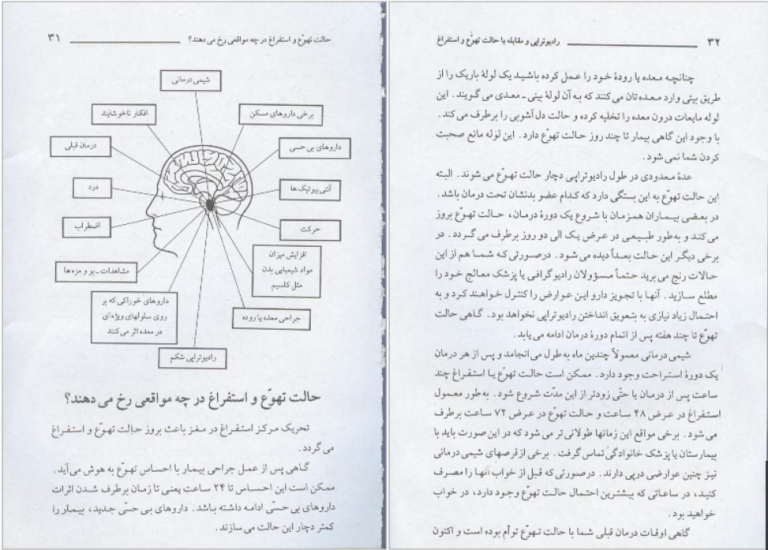 ۳۱
حالت تهوّع و استفراغ در چه مواقعی رخ می دهند؟
شیمی درمانی
افکار ناخوشایند
برخی داروهای مسکن
درمان قبلی
داروهای بی حسی
درد
آنتی بیوتیک ها
اضطراب
حرکت
مشاهدات ـ بو و مزه ها
افزایش میزان
مواد شیمیایی بدن
مثل کلسیم
داروهای خوراکی که بر
روی سلولهای ویژه ای
در معده اثر می کنند
جراحی معده یا روده
رادیوتراپی شکم
حالت تهوّع و استفراغ در چه مواقعی رخ می دهند؟
تحریک مرکز استفراغ در مغز باعث بروز حالت تهوّع و استفراغ
می گردد.
گاهی پس از عمل جراحی بیمار با احساس تهوّع به هوش می آید.
ممکن است این احساس تا ۲۴ ساعت یعنی تا زمان برطرف شدن اثرات
داروهای بی حسّی ادامه داشته باشد. داروهای بی حسّی جدید، بیمار را
کمتر دچار این حالت می سازند.
۳۲
رادیوتراپی و مقابله با حالت تهوّع و استفراغ
چنانچه معده یا رودهٔ خود را عمل کرده باشید یک لولهٔ باریک را از
طریق بینی وارد معده تان می کنند که به آن لولهٔ بینی ـ معدی می گویند. این
لوله مایعات درون معده را تخلیه کرده و حالت دل آشوبی را برطرف می کند.
با وجود این گاهی بیمار تا چند روز حالت تهوّع دارد. این لوله مانع صحبت
کردن شما نمی شود.
عدهٔ معدودی در طول رادیوتراپی دچار حالت تهوّع می شوند. البته
این حالت تهوّع به این بستگی دارد که کدام عضو بدنشان تحت درمان باشد.
در بعضی بیماران همزمان با شروع یک دورهٔ درمان، حالت تهوّع بروز
می کند و به طور طبیعی در عرض یک الی دو روز برطرف می گردد. در
برخی دیگر این حالت بعداً دیده می شود. درصورتی که شما هم از این
حالات رنج می برید حتماً مسؤولان رادیوگرافی یا پزشک معالج خود را
مطلع سازید. آنها با تجویز دارو این عوارض را کنترل خواهند کرد و به
احتمال زیاد نیازی به بتعویق انداختن رادیوتراپی نخواهد بود. گاهی حالت
تهوّع تا چند هفته پس از اتمام دورهٔ درمان ادامه می یابد.
شیمی درمانی معمولاً چندین ماه به طول می انجامد و پس از هر درمان
یک دورهٔ استراحت وجود دارد. ممکن است حالت تهوّع یا استفراغ چند
ساعت پس از درمان یا حتّی زودتر از این مدّت شروع شود. به طور معمول
استفراغ در عرض ۴۸ ساعت و حالت تهوّع در عرض ۷۲ ساعت برطرف
می شود. برخی مواقع این زمانها طولانی تر می شود که در این صورت باید با
بیمارستان یا پزشک خانوادگی تماس گرفت. برخی از قرصهای شیمی درمانی
نیز چنین عوارضی در پی دارند. درصورتی که قبل از خواب آنها را مصرف
کنید، در ساعاتی که بیشترین احتمال حالت تهوّع وجود دارد، در خواب
خواهید بود.
گاهی اوقات درمان قبلی شما با حالت تهوّع توأم بوده است و اکنون